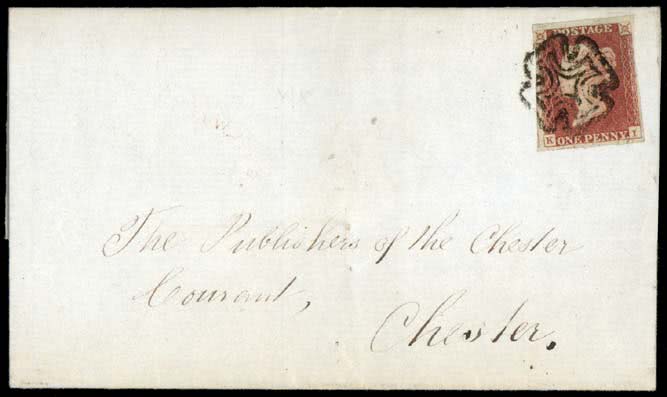 POSTAGE
K ONE PENNY I
The Publishers of the Chester
Courant,
Chester.